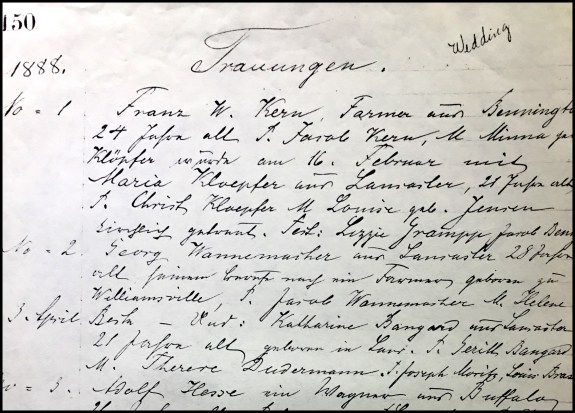 150
Wedding
1888. Trauungen.
No = 1 Franz W. Kern, Farmer aus Benningto
24 Jahre alt P. Jacob Kern, M Minna ge
Klöpfer wurde am 16. Februar mit
Maria Kloepfer aus Lancaster, 21 Jahre alt
P. Christ Kloepfer M. Louise geb. Jensen
getraut. Test: Lizzie Grampp Jacob
No = 2. Georg Wannemacher aus Lancaster 28 Jahre
alt seinem nach ein Farmer geboren zu
Williamsville, P. Jacob Wannemacher M. Helene
3 April. Und: Katharine Bangard aus Lancaster
21 Jahre alt geboren in Lanc. P. Gerith Bangard
M. Therese Dudermann T. Joseph Moritz, Louis
No = 3. Adolf Hesse ein Wagner aus Buffalo